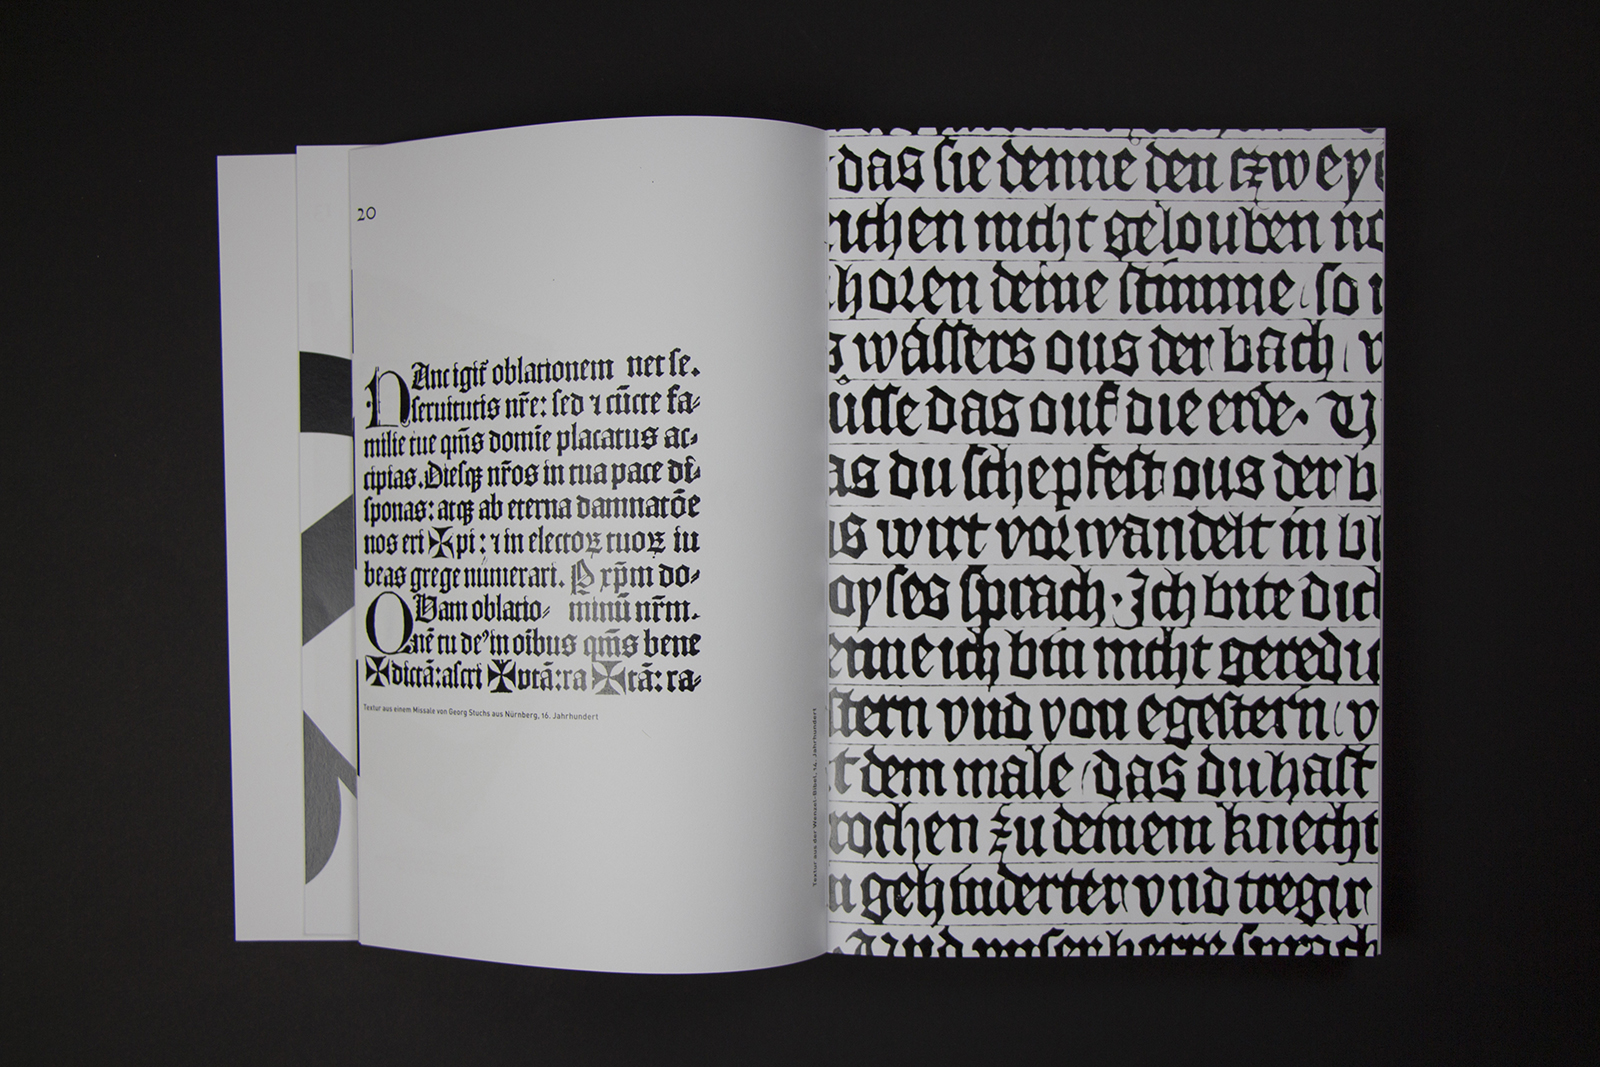 20
Hanc igit̄ oblationem
seruitutis nr̄e: sed ⁊ cūcte fa⸗
milie tue qm̄s domīe placatus ac⸗
cipias. Diesqꝫ nr̄os in tua pace di⸗
sponas: atqꝫ ab eterna damnatōe
nos eri ✠ pi: ⁊ in electoꝝ tuoꝝ iu
beas grege numerari. P xp̄m do⸗
QUam oblatio⸗ minū nr̄m.
nē tu de' in oībus qm̄s bene
✠ dictā: ascri ✠ ptā: ra ✠ tā: ra⸗
Textur aus einem Missale von Georg Stuchs aus Nürnberg, 16. Jahrhundert
Textur aus der Wenzel-Bibel, 14. Jahrhundert
das sie denne den czwey
ichen nicht gelouben no
horen deine stimme so
s wassers ous der bach
üsse das ouf die erde.
as du schepfest ous der b
s wirt vorwandelt in bl
oyses sprach. Ich bite dich
enne ich bin nicht geredi
stern vnd von egestern v
t dem male das du hast
rochen zu deinem knecht
n gehinderter vnd tregir
Vnd vnser herre sprach